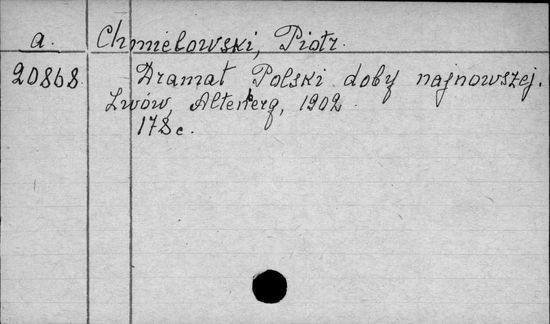 a. Chmielowski, Piotr.
20868 Dramat Polski doby najnowszej.
Lwów, Altenberg, 1902.
178 c.